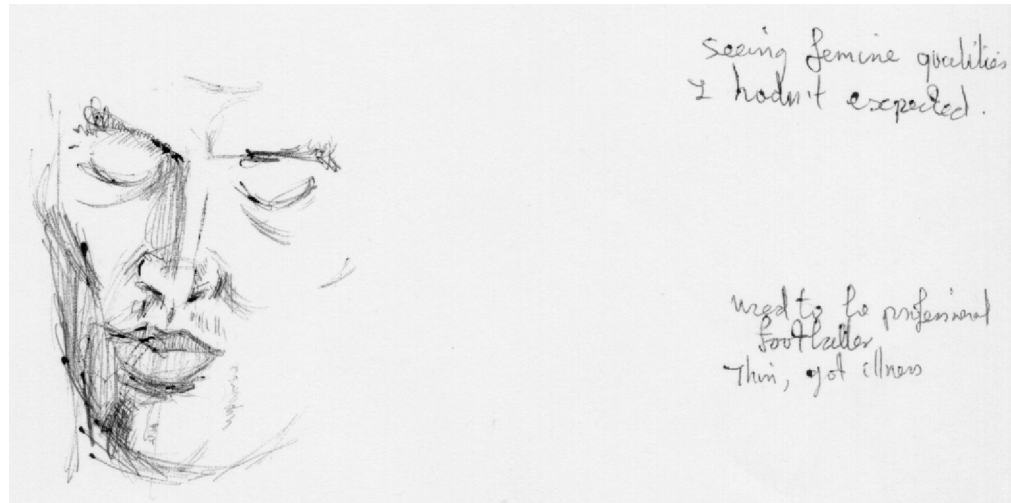 Seeing femine qualities
I hadn't expected.
used to be professional
footballer
Thin, got illness